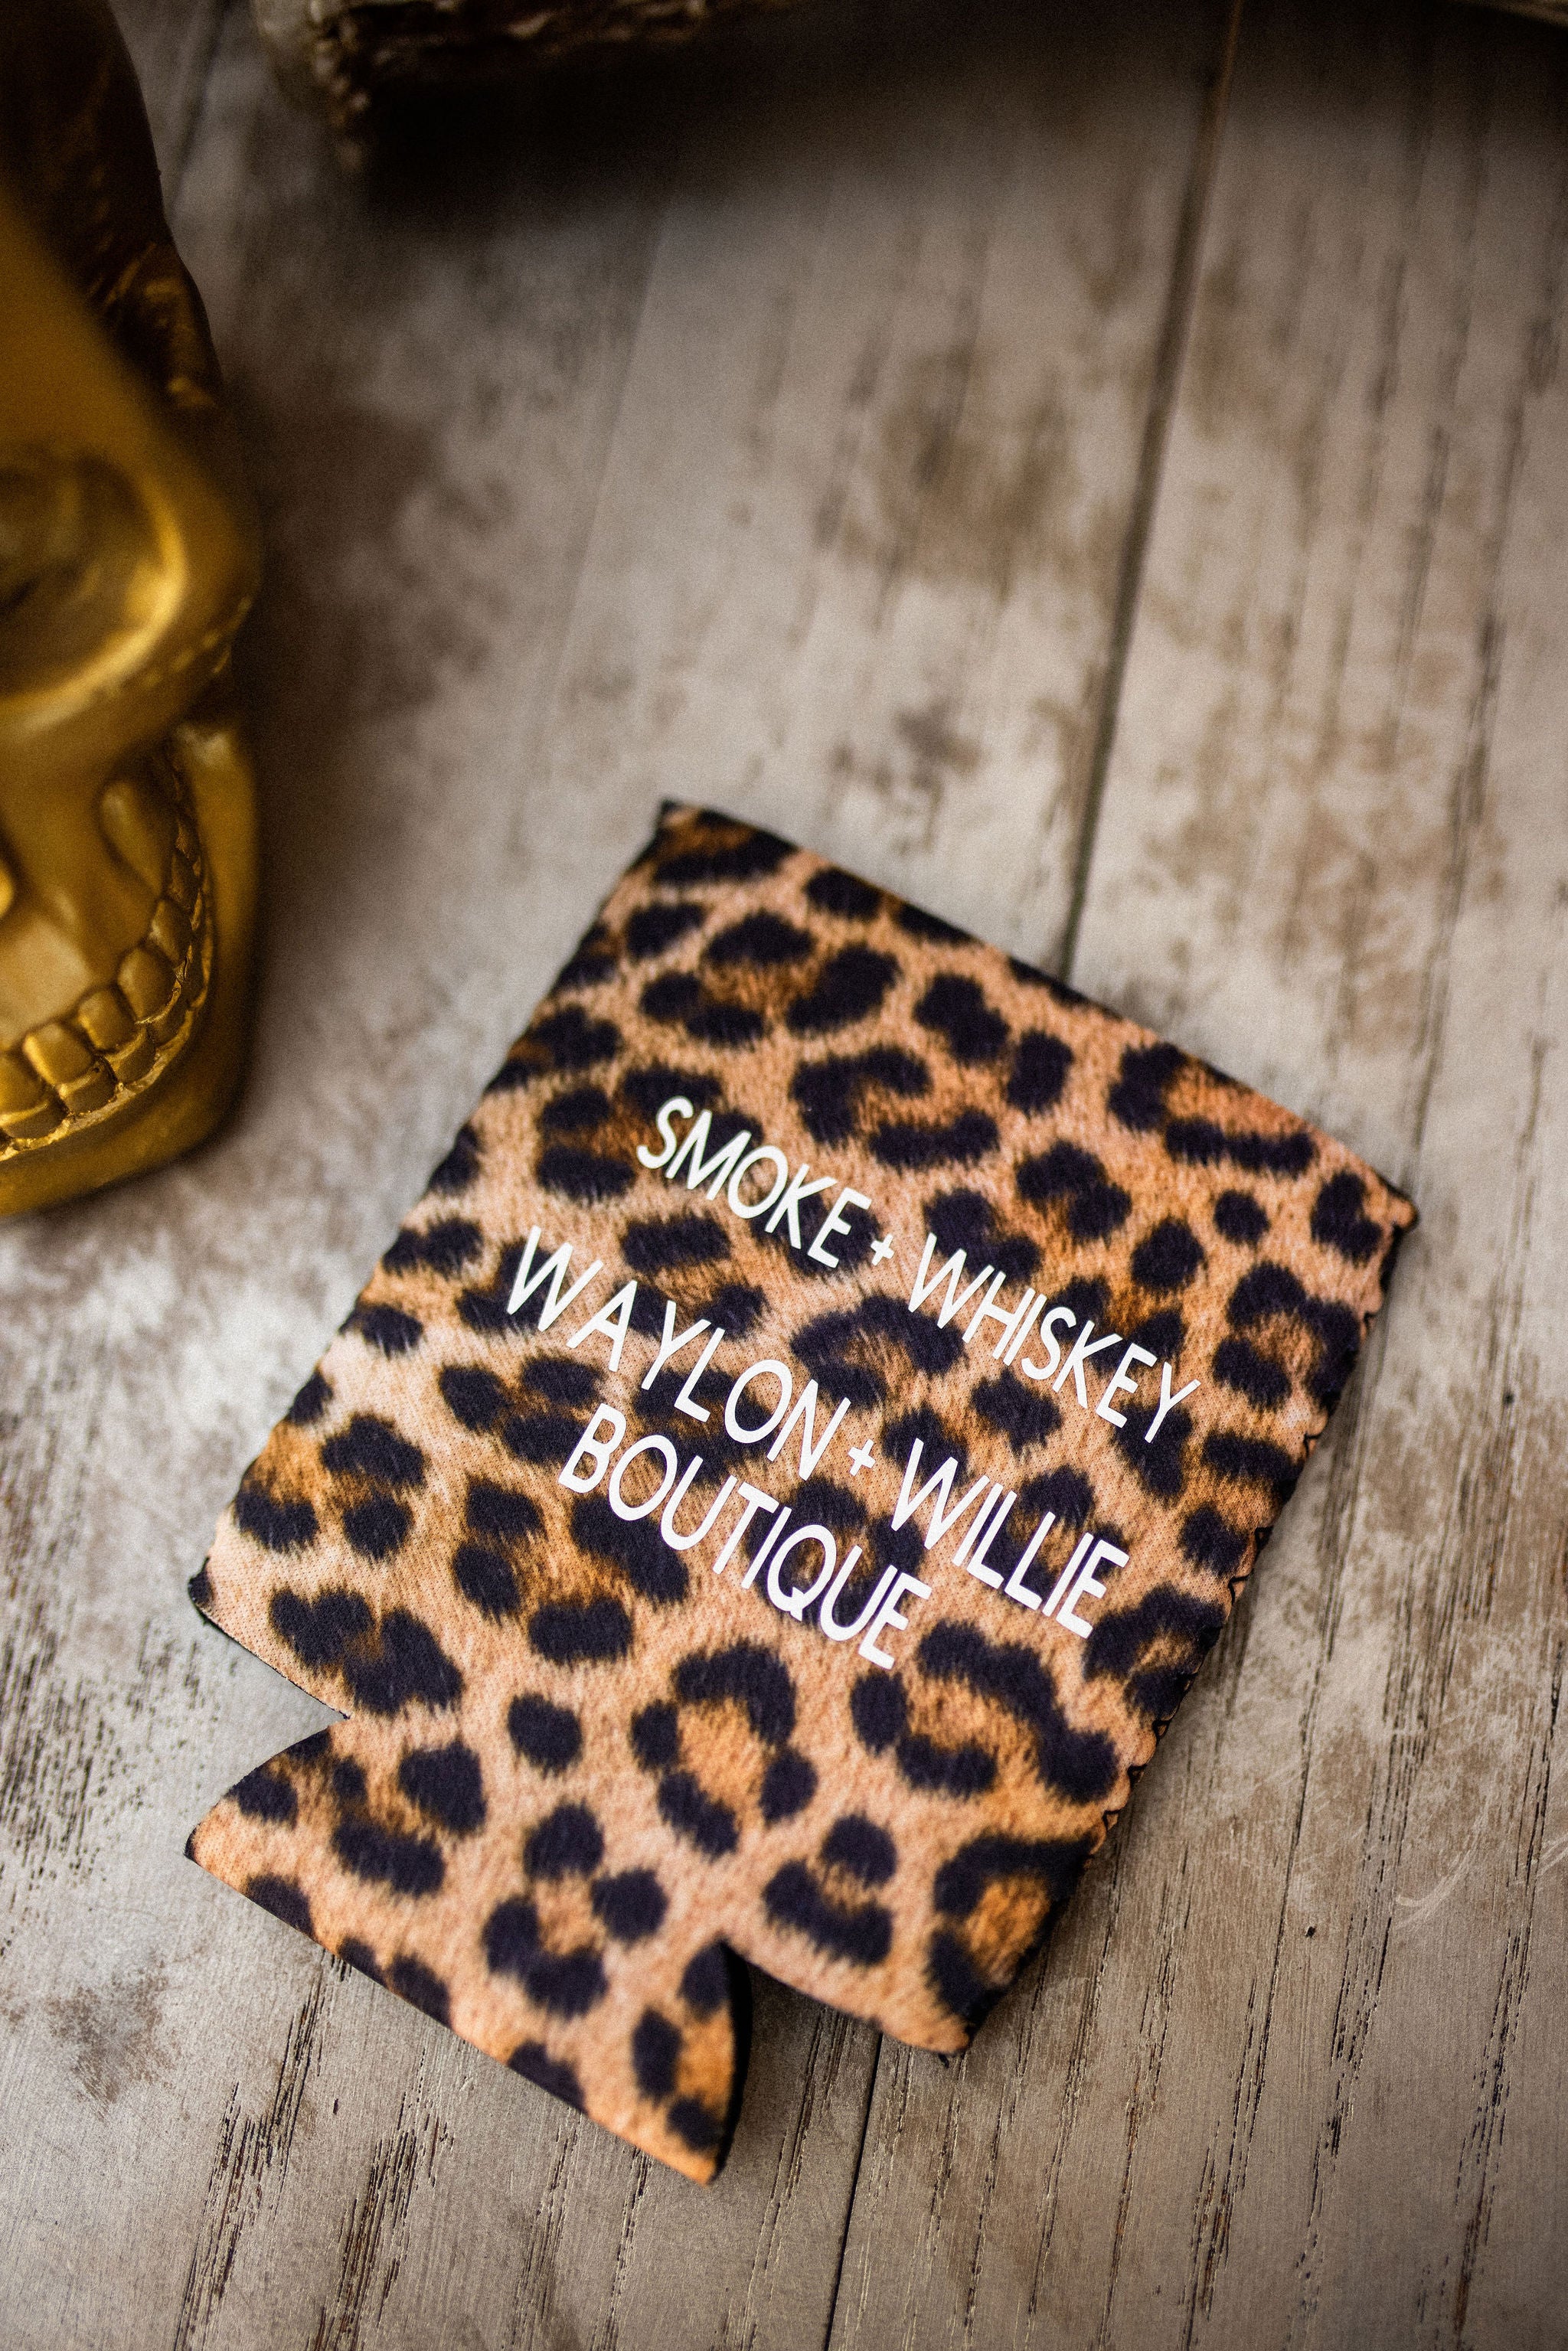 SMOKE + WHISKEY
WAYLON + WILLIE
BOUTIQUE